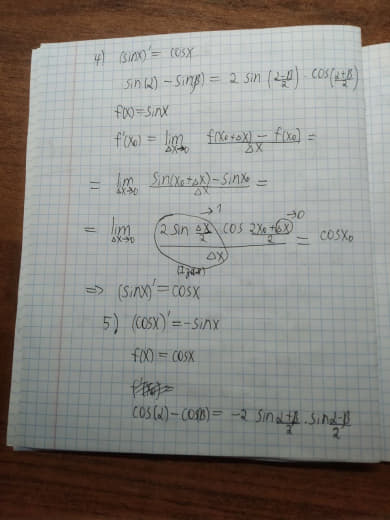 4) (sinx)' = cosx
sin(α) - sin(β) = 2 sin (α-β/2) · cos(α+β/2)
f(x) = sinx
f'(x₀) = lim Δx→0 f(x₀+Δx) - f(x₀) / Δx =
= lim Δx→0 sin(x₀+Δx) - sinx₀ / Δx =
= lim Δx→0 2 sin Δx/2 cos 2x₀+Δx/2 / Δx = cosx₀
→1 →0
⇒ (sinx)' = cosx
5) (cosx)' = -sinx
f(x) = cosx
cos(α) - cos(β) = -2 sin α+β/2 · sin α-β/2